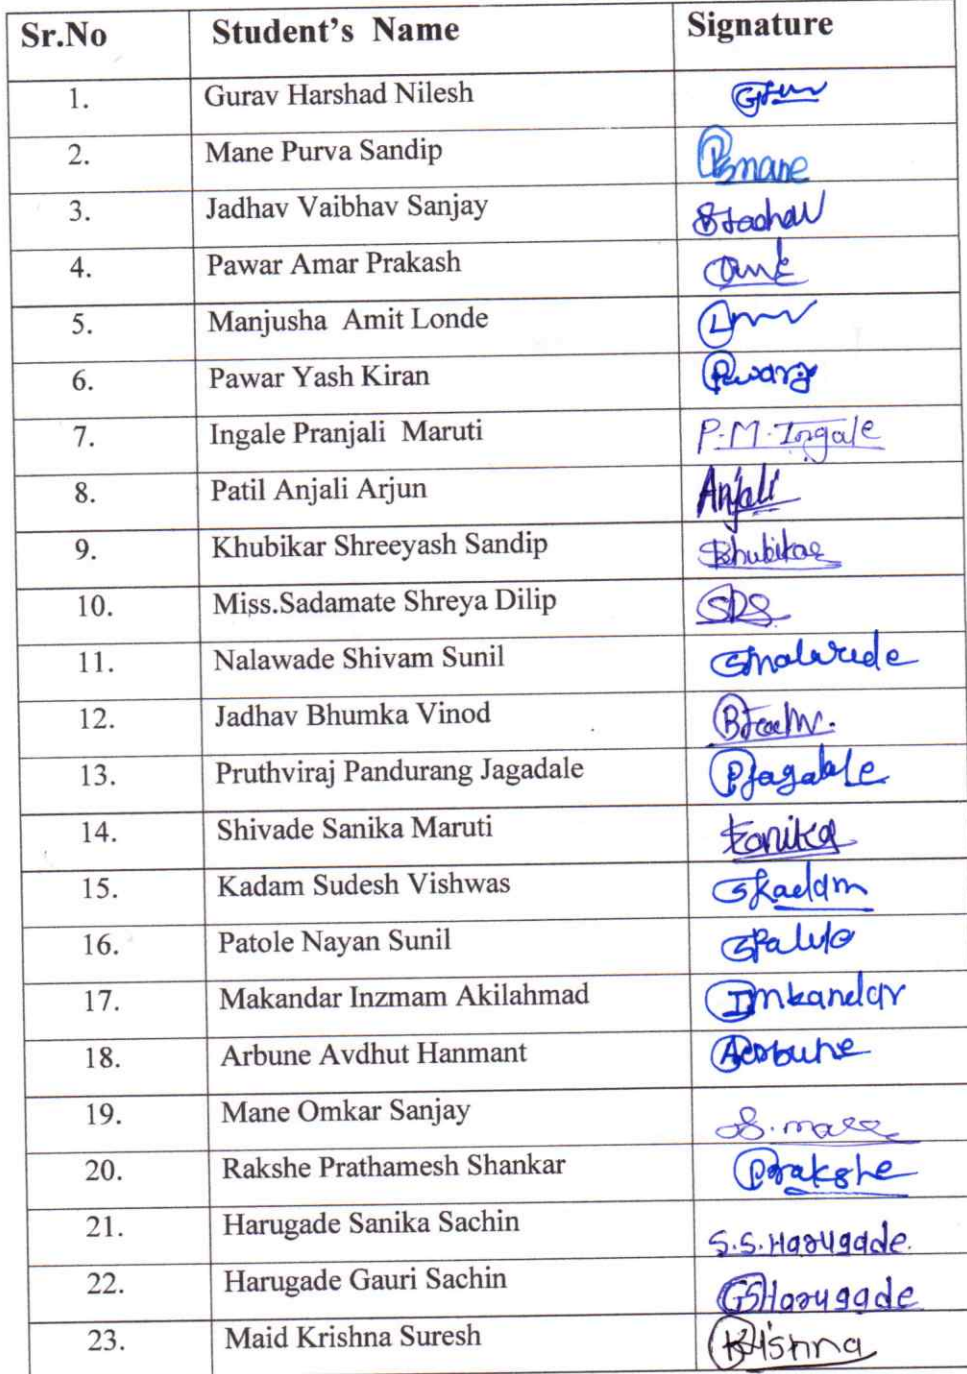 Sr.No Student's Name Signature
1. Gurav Harshad Nilesh
2. Mane Purva Sandip Psmane
3. Jadhav Vaibhav Sanjay
4. Pawar Amar Prakash
5. Manjusha Amit Londe
6. Pawar Yash Kiran
7. Ingale Pranjali Maruti P.M.Ingale
8. Patil Anjali Arjun Anjali
9. Khubikar Shreeyash Sandip
10. Miss.Sadamate Shreya Dilip SDS
11. Nalawade Shivam Sunil
12. Jadhav Bhumka Vinod
13. Pruthviraj Pandurang Jagadale
14. Shivade Sanika Maruti
15. Kadam Sudesh Vishwas Skadam
16. Patole Nayan Sunil
17. Makandar Inzmam Akilahmad
18. Arbune Avdhut Hanmant
19. Mane Omkar Sanjay
20. Rakshe Prathamesh Shankar Prakshe
21. Harugade Sanika Sachin S.S.Harugade.
22. Harugade Gauri Sachin GSHarugade
23. Maid Krishna Suresh Krishna